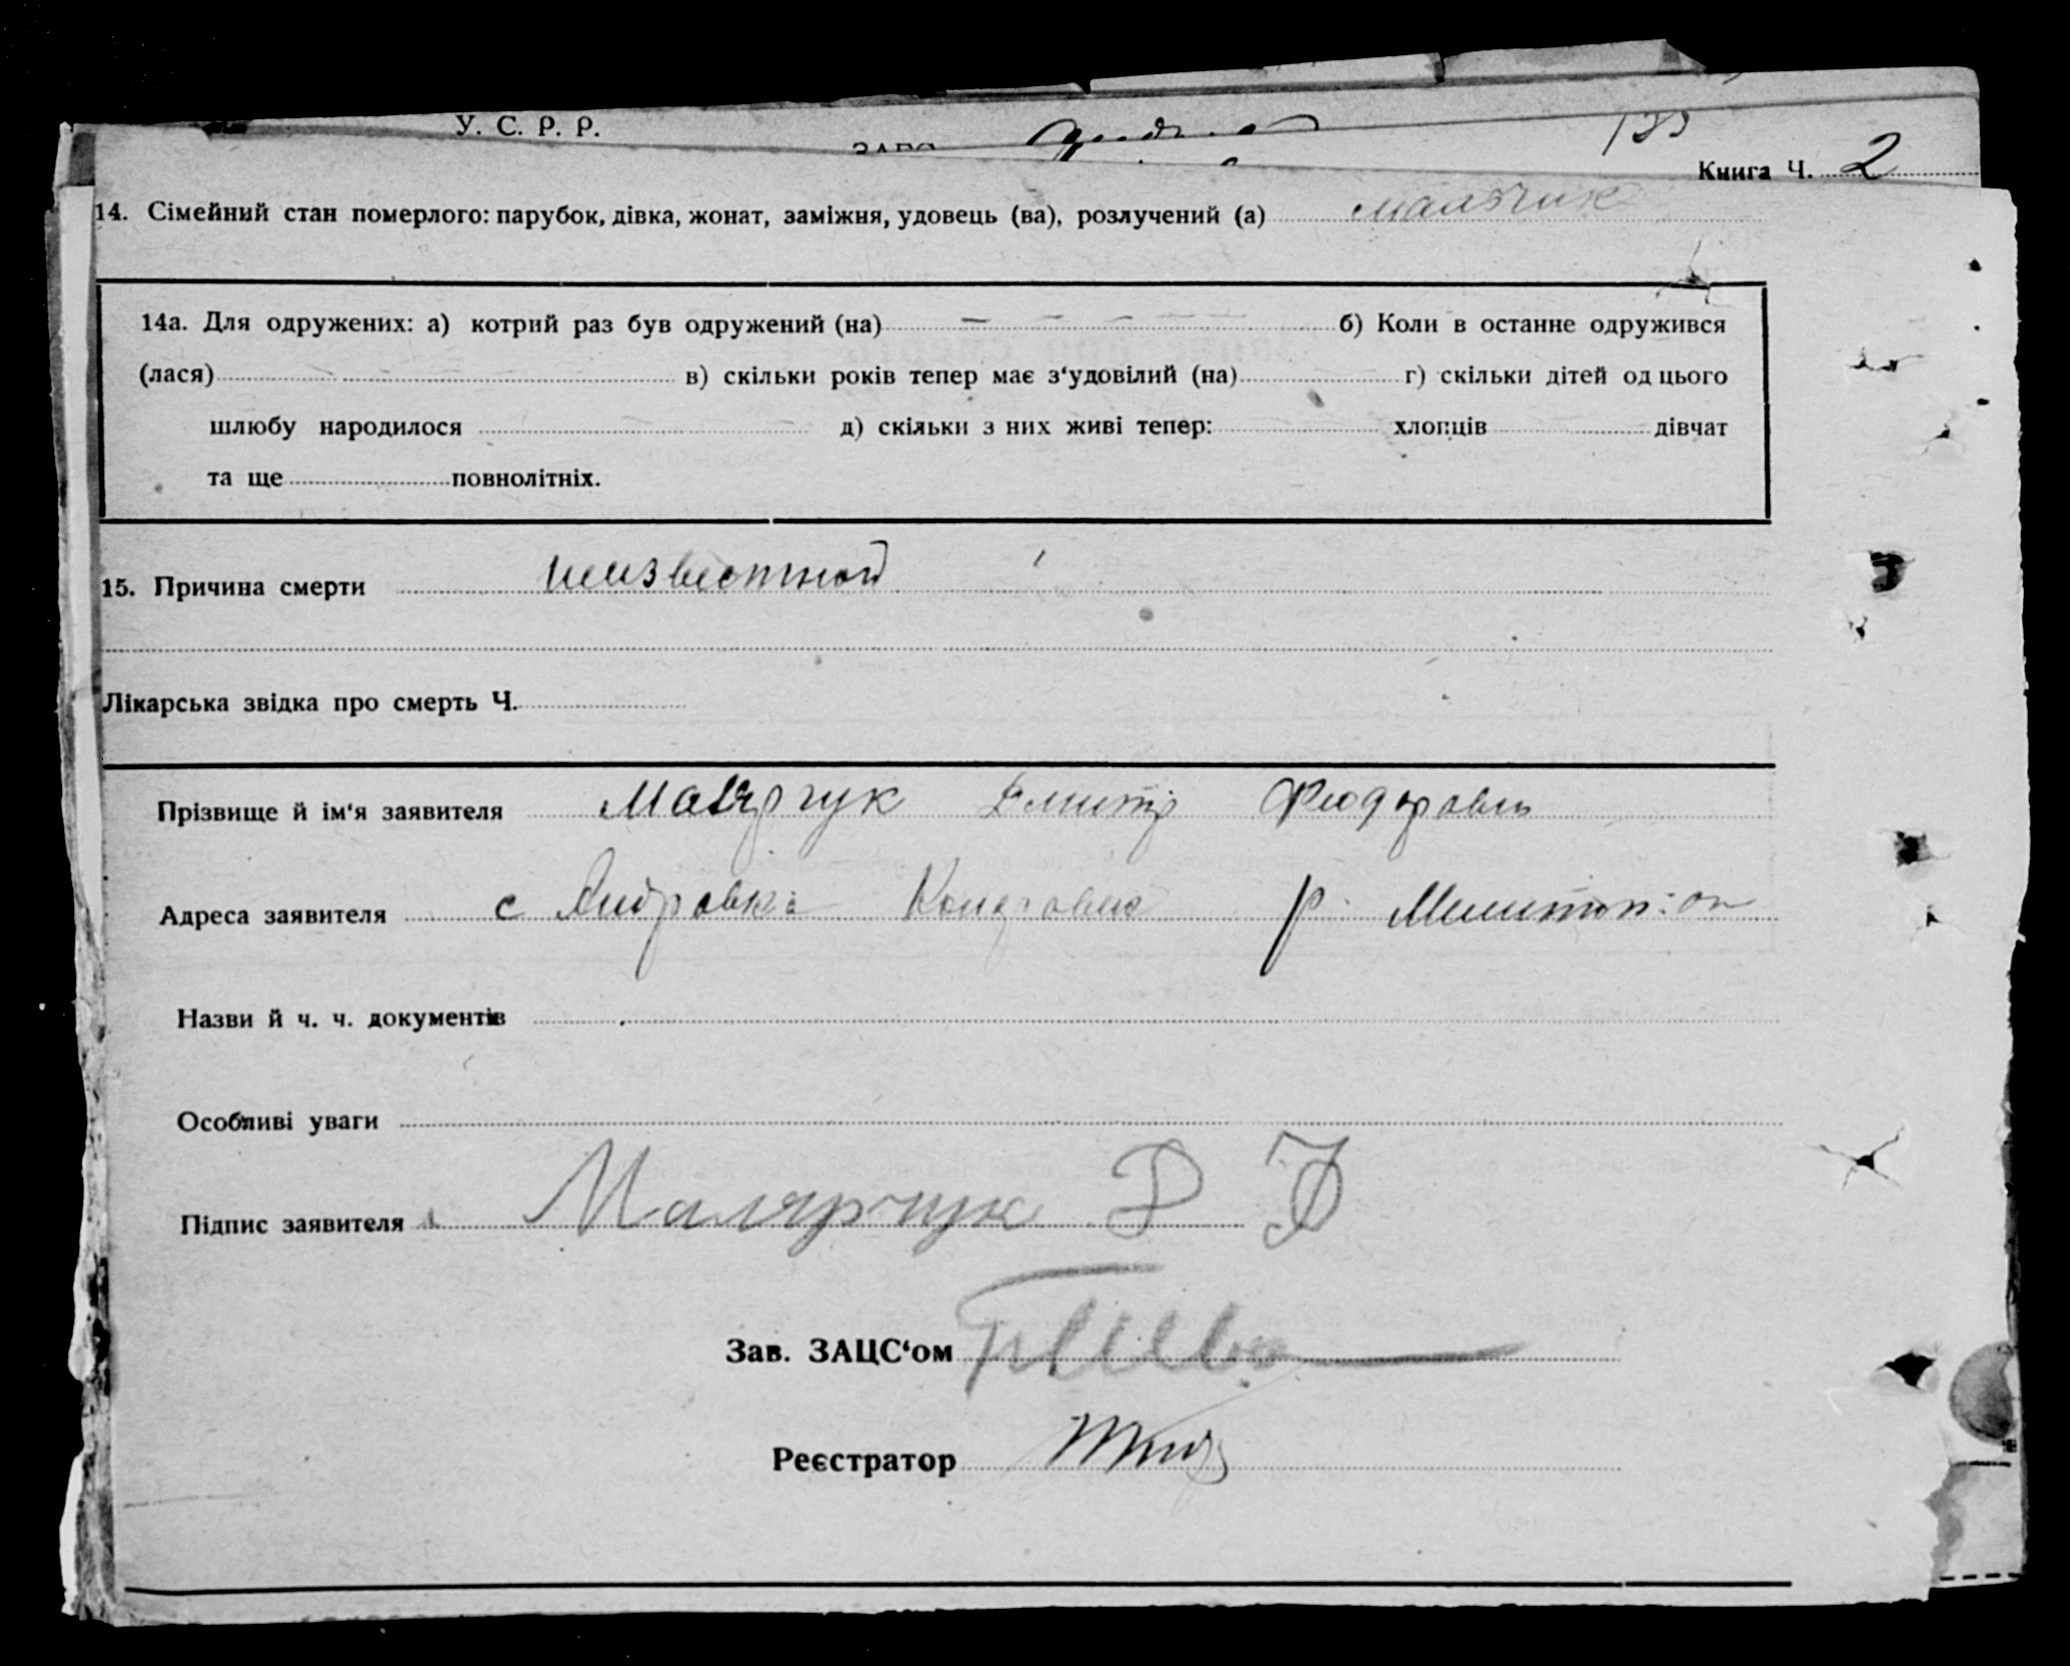 У. С. Р. Р.
Книга Ч. 2
14. Сімейний стан померлого: парубок, дівка, жонат, заміжня, удовець (ва), розлучений (а) мальчик
14а. Для одружених: а) котрий раз був одружений (на) б) Коли в останнє одружився
(лася) в) скільки років тепер має з‘удовілий (на) г) скільки дітей од цього
шлюбу народилося д) скільки з них живі тепер: хлопців дівчат
та ще повнолітніх.
15. Причина смерти неизвестной
Лікарська звідка про смерть Ч.
Прізвище й ім‘я заявителя Малярчук Дмитр
Адреса заявителя с р.
Назви й ч. ч. документів
Особливі уваги
Підпис заявителя Малярчук Д Ф
Зав. ЗАЦС‘ом
Реєстратор